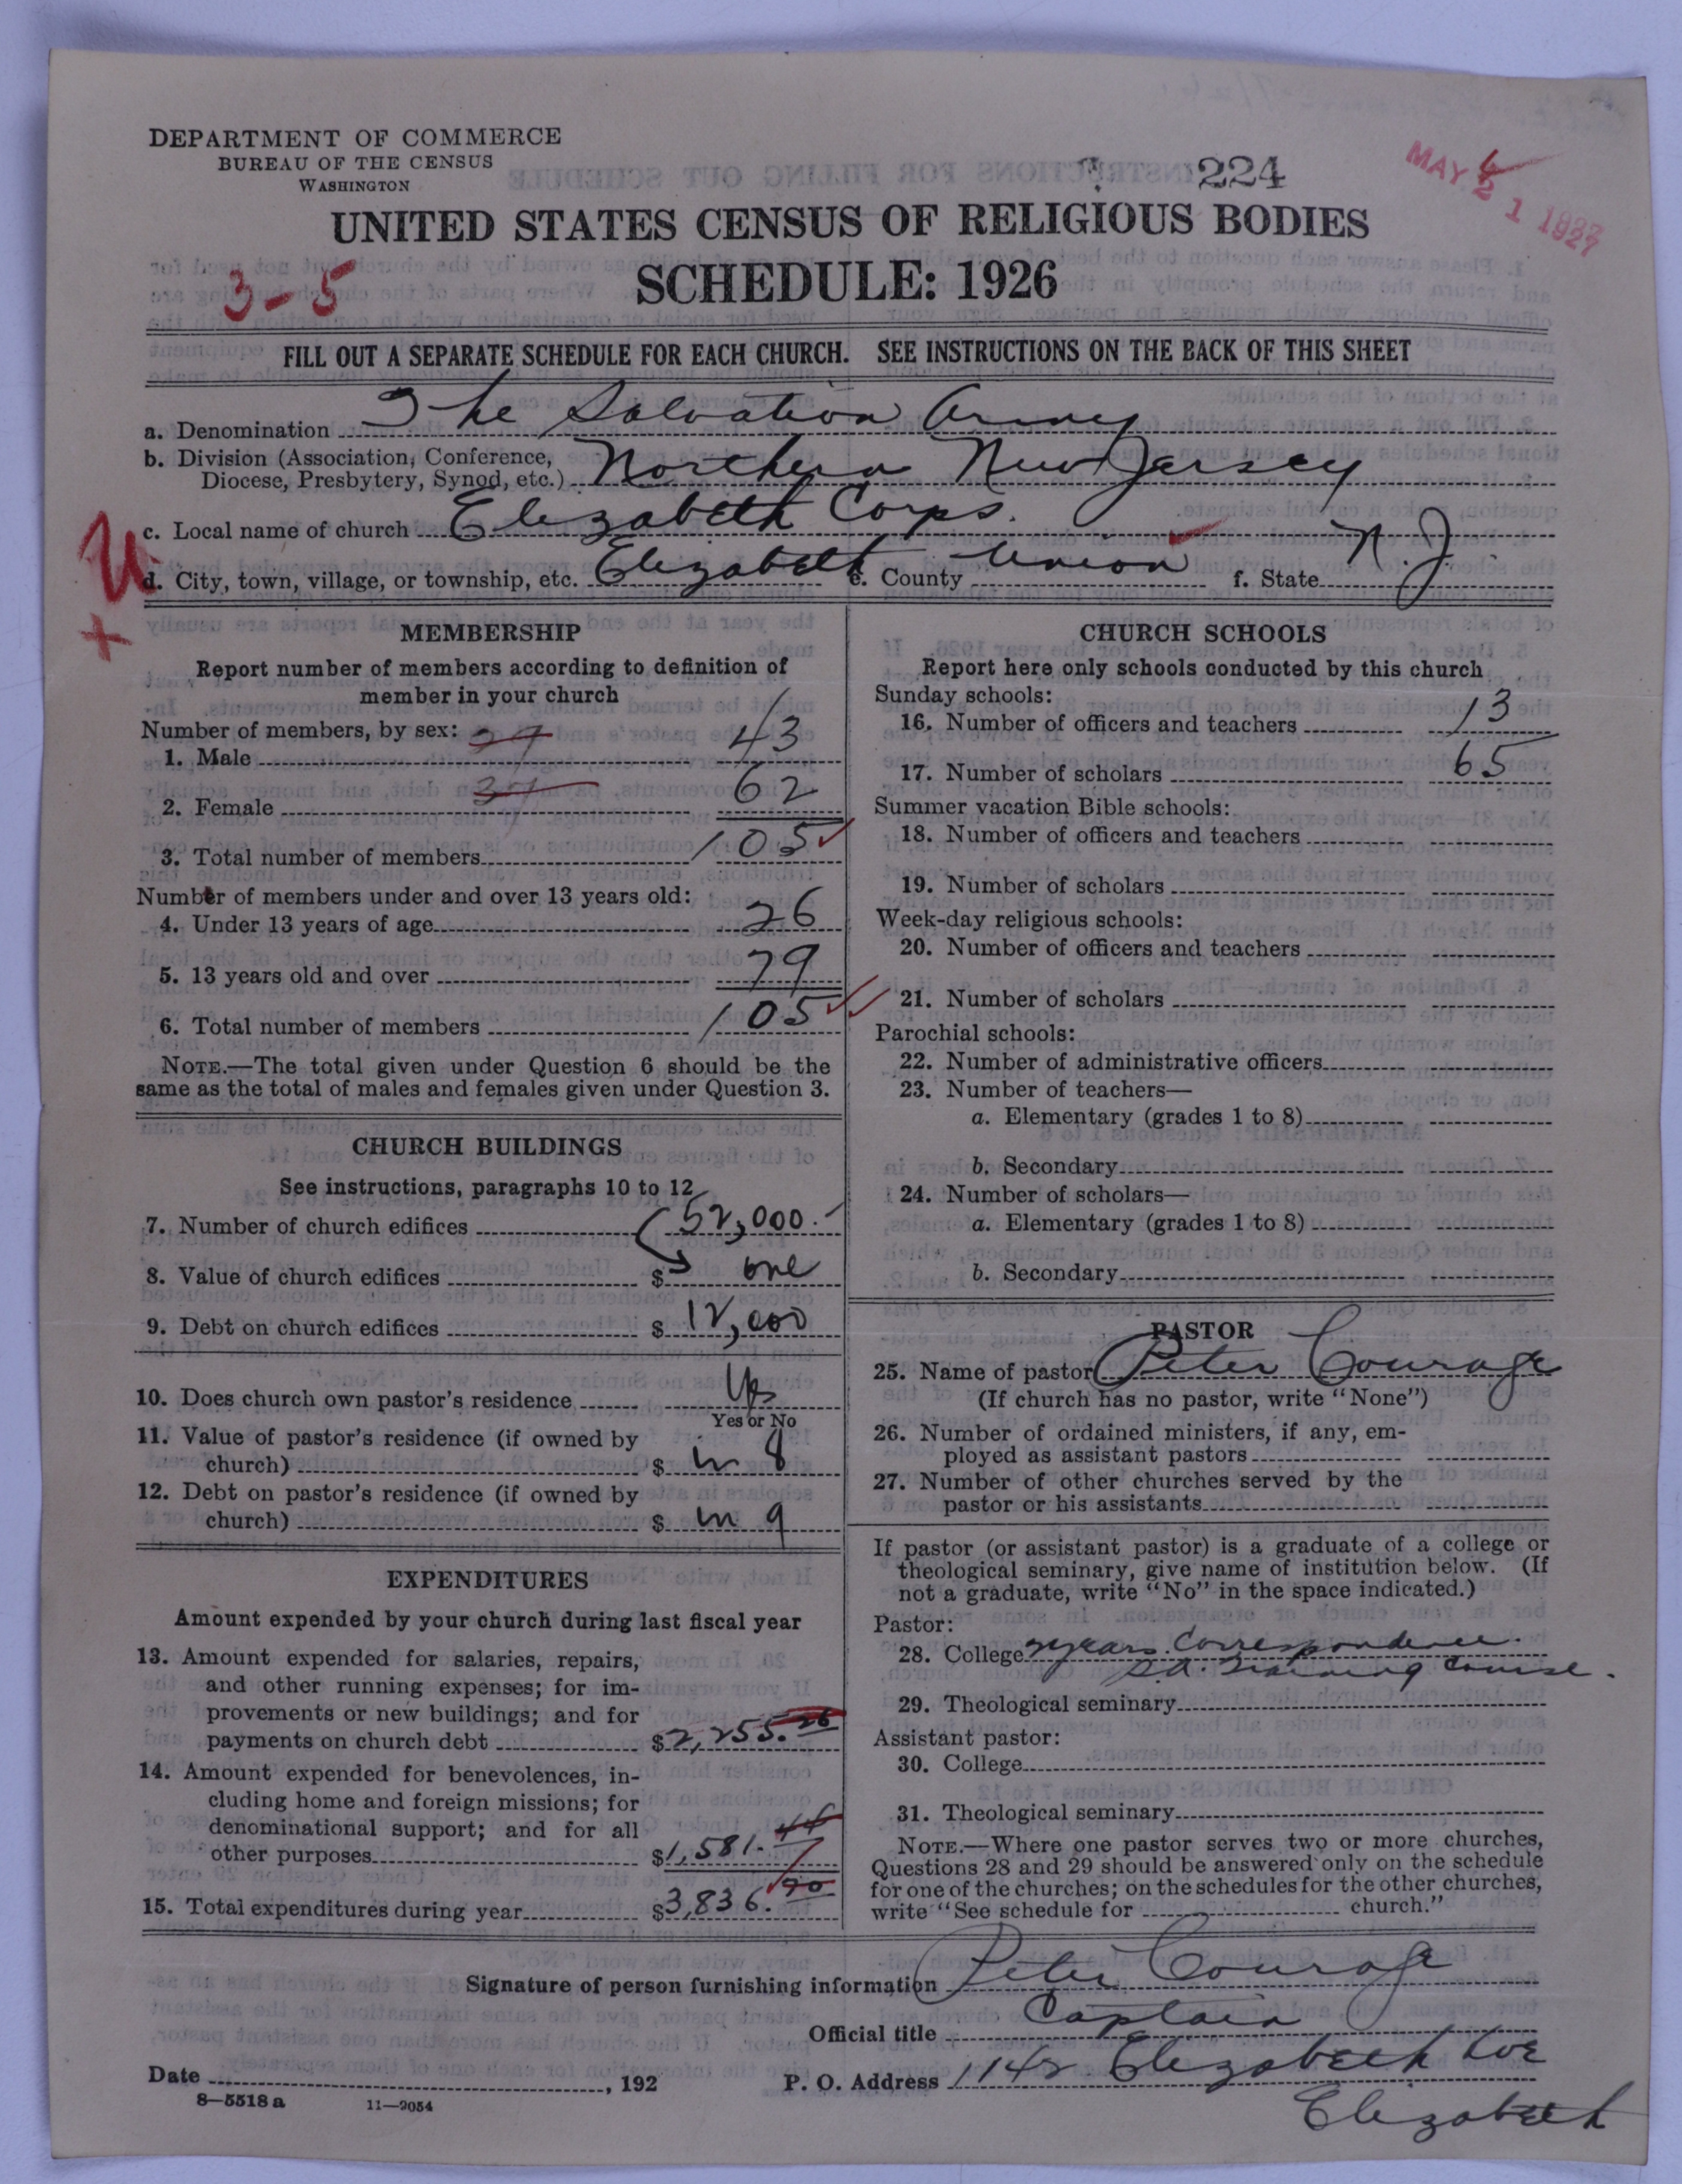 DEPARTMENT OF COMMERCE
BUREAU OF THE CENSUS
WASHINGTON
224
MAY 21 1927
UNITED STATES CENSUS OF RELIGIOUS BODIES
SCHEDULE: 1926
3-5
FILL OUT A SEPARATE SCHEDULE FOR EACH CHURCH. SEE INSTRUCTIONS ON THE BACK OF THIS SHEET
a. Denomination The Salvation Army
b. Division (Association, Conference,
Diocese, Presbytery, Synod, etc.) Northern New Jersey
c. Local name of church Elizabeth Corps.
U
d. City, town, village, or township, etc. Elizabeth e. County Union f. State N. J.
+
MEMBERSHIP
Report number of members according to definition of
member in your church
Number of members, by sex:
1. Male 43
2. Female 37 62
3. Total number of members 105
Number of members under and over 13 years old:
4. Under 13 years of age 26
5. 13 years old and over 79
6. Total number of members 105
NOTE.—The total given under Question 6 should be the
same as the total of males and females given under Question 3.
CHURCH BUILDINGS
See instructions, paragraphs 10 to 12
7. Number of church edifices 52,000.-
8. Value of church edifices $ one
9. Debt on church edifices $ 12,000
10. Does church own pastor's residence Yes
Yes or No
11. Value of pastor's residence (if owned by
church) $ in 8
12. Debt on pastor's residence (if owned by
church) $ in 9
EXPENDITURES
Amount expended by your church during last fiscal year
13. Amount expended for salaries, repairs,
and other running expenses; for im-
provements or new buildings; and for
payments on church debt $2,255.26
14. Amount expended for benevolences, in-
cluding home and foreign missions; for
denominational support; and for all
other purposes $1,581.44
15. Total expenditures during year $3,836.70
CHURCH SCHOOLS
Report here only schools conducted by this church
Sunday schools:
16. Number of officers and teachers 13
17. Number of scholars 65
Summer vacation Bible schools:
18. Number of officers and teachers
19. Number of scholars
Week-day religious schools:
20. Number of officers and teachers
21. Number of scholars
Parochial schools:
22. Number of administrative officers
23. Number of teachers—
a. Elementary (grades 1 to 8)
b. Secondary
24. Number of scholars—
a. Elementary (grades 1 to 8)
b. Secondary
PASTOR
25. Name of pastor Peter Courage
(If church has no pastor, write "None")
26. Number of ordained ministers, if any, em-
ployed as assistant pastors
27. Number of other churches served by the
pastor or his assistants
If pastor (or assistant pastor) is a graduate of a college or
theological seminary, give name of institution below. (If
not a graduate, write "No" in the space indicated.)
Pastor:
28. College 2 years Correspondence.
S.A. Training Course.
29. Theological seminary
Assistant pastor:
30. College
31. Theological seminary
NOTE.—Where one pastor serves two or more churches,
Questions 28 and 29 should be answered only on the schedule
for one of the churches; on the schedules for the other churches,
write "See schedule for church."
Signature of person furnishing information Peter Courage
Official title Captain
Date , 192 P. O. Address 1142 Elizabeth Ave
Elizabeth
8—5518 a 11—9054